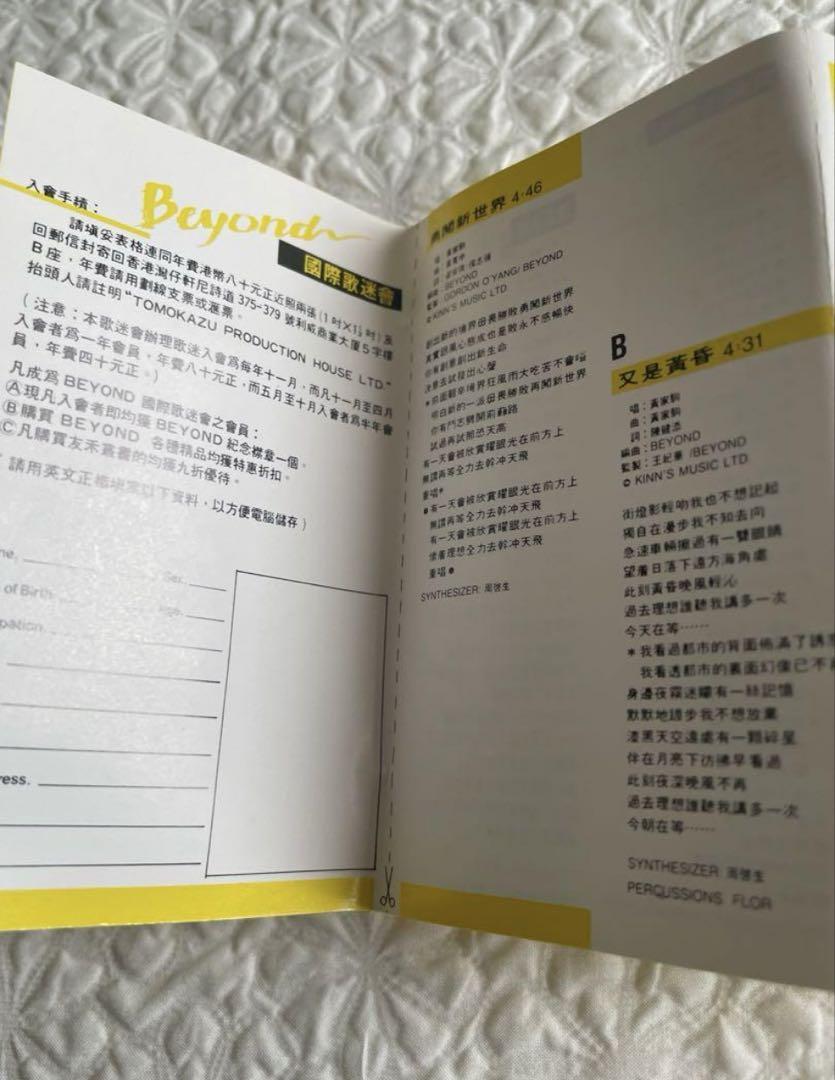 入會手續：
Beyond
國際歌迷會
請填妥表格連同年費港幣八十元正近照兩張（1吋×1½吋）及
回郵信封寄回香港灣仔軒尼詩道375-379號利威商業大厦5字樓
B座，年費請用劃線支票或滙票。
抬頭人請註明“TOMOKAZU PRODUCTION HOUSE LTD.”
（注意：本歌迷會辦理歌迷入會為每年十一月，而凡十一至四月
入會者為一年會員，年費八十元正，而五月至十月入會者為半年會
員，年費四十元正。）
凡成為BEYOND國際歌迷會之會員：
Ⓐ現凡入會者即均獲BEYOND紀念襟章一個。
Ⓑ購買BEYOND各種精品均獲特惠折扣。
Ⓒ凡購買友禾叢書的均獲九折優待。
請用英文正楷填寫以下資料，以方便電腦儲存）
Sex.
of Birth
Age.
pation.
ress.
勇闖新世界 4:46
唱：黃家駒
編曲：BEYOND
監製：GORDON O'YANG/BEYOND
© KINN'S MUSIC LTD
創出新的境界毋畏勝敗勇闖新世界
其實跟風心態成也是敗永不感暢快
你有創意創出新生命
決意去試發出心聲
明白新的一派毋畏勝敗再闖新世界
你有鬥志劈開前蘇路
試過再試閒恐天高
有一天會被欣賞耀眼光在前方上
無謂再等全力去幹冲天飛
重唱*
●有一天會被欣賞耀眼光在前方上
無謂再等全力去幹冲天飛
有一天會被欣賞耀眼光在前方上
懷着理想全力去幹冲天飛
重唱●
SYNTHESIZER: 周啓生
B
又是黃昏 4:31
唱：黃家駒
曲：黃家駒
詞：陳健添
編曲：BEYOND
監製：王紀華/BEYOND
© KINN'S MUSIC LTD
街燈影輕吻我也不想記起
獨自在漫步我不知去向
急速車輛擦過有一雙眼睛
望着日落下遠方海角處
此刻黃昏晚風輕沁
過去理想誰聽我講多一次
今天在等……
*我看過都市的背面佈滿了誘
我看透都市的裏面幻像已不
身邊夜霧迷矇有一絲記憶
默默地踏步我不想放棄
漆黑天空遠處有一顆碎星
伴在月亮下彷彿早看過
此刻夜深晚風不再
過去理想誰聽我講多一次
今朝在等……
SYNTHESIZER 周啓生
PERQUSSIONS FLOR